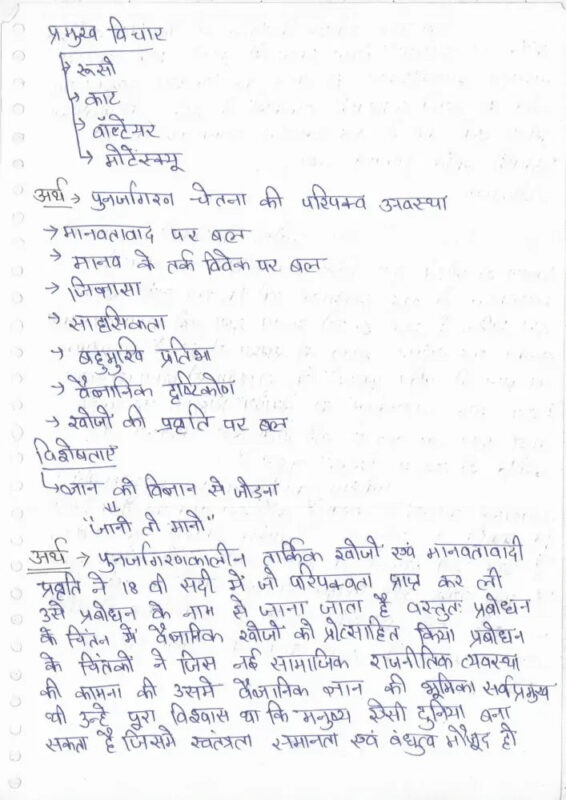 प्रमुख विचार
→ रूसो
→ कांट
→ वॉल्टेयर
→ मोटेंस्क्यू
अर्थ → पुनर्जागरन चेतना की परिपक्व अवस्था
→ मानवतावाद पर बल
→ मानव के तर्क विवेक पर बल
→ जिज्ञासा
→ साहसिकता
→ बहुमुखि प्रतिभा
→ वैज्ञानिक दृष्टिकोण
→ खोजों की प्रवृति पर बल
विशेषताएं
→ ज्ञान को विज्ञान से जोड़ना
"जानो तो मानो"
अर्थ → पुनर्जागरणकालीन तार्किक खोजों एवं मानवतावादी
प्रवृति ने 18 वी सदी में जो परिपक्वता प्राप्त कर ली
उसे प्रबोधन के नाम से जाना जाता है वस्तुतः प्रबोधन
के चिंतन में वैज्ञानिक खोजों को प्रोत्साहित किया प्रबोधन
के चिंतकों ने जिस नई सामाजिक राजनीतिक व्यवस्था
की कामना की उसमे वैज्ञानिक ज्ञान की भूमिका सर्वप्रमुख
थी उन्हे पूरा विश्वास था कि मनुष्य ऐसी दुनिया बना
सकता है जिसमे स्वंतत्रता समानता एवं बंधुत्व मौजूद हो